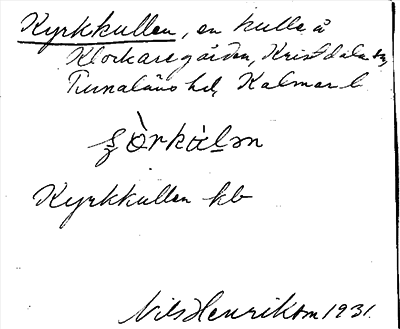 Kyrkkullen, en kulle å
Klockaregården, Kristdala sn,
Tunaläns hd, Kalmar l.
Kyrkkullen kb
Nils Henrikson 1931.